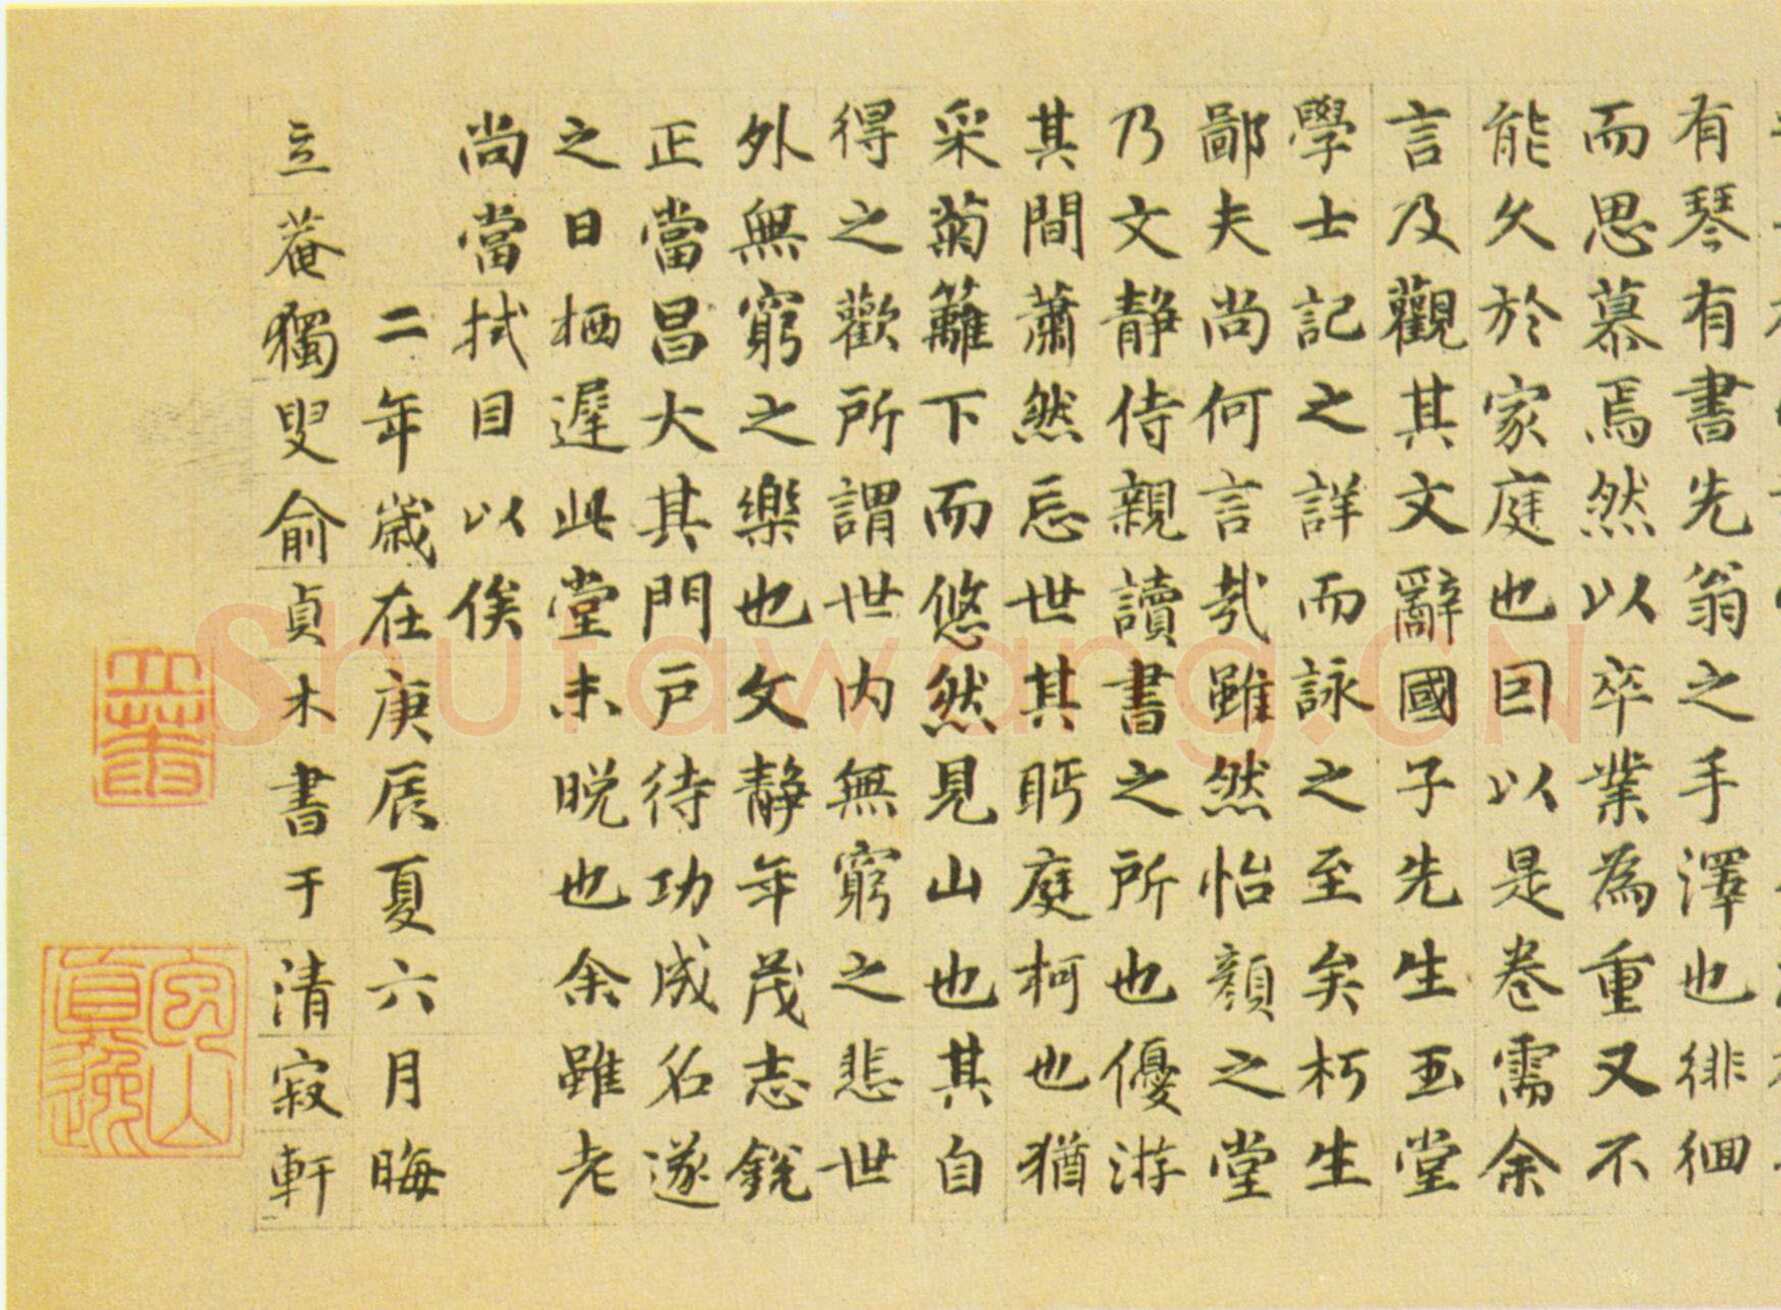 有琴有書先翁之手澤也徘徊
而思慕焉然以卒業為重又不
能久於家庭也囙以是卷需余
言及觀其文辭國子先生玉堂
學士記之詳而詠之至矣朽生
鄙夫尚何言哉雖然怡顏之堂
乃文靜侍親讀書之所也優游
其間蕭然忘世其眄庭柯也猶
采菊籬下而悠然見山也其自
得之歡所謂世內無窮之悲世
外無窮之樂也文靜年茂志銳
正當昌大其門戶待功成名遂
之日栖遲此堂未晚也余雖老
尚當拭目以俟
二年歲在庚辰夏六月晦
立菴獨叟俞貞木書于清寂軒
Shufawang.CN